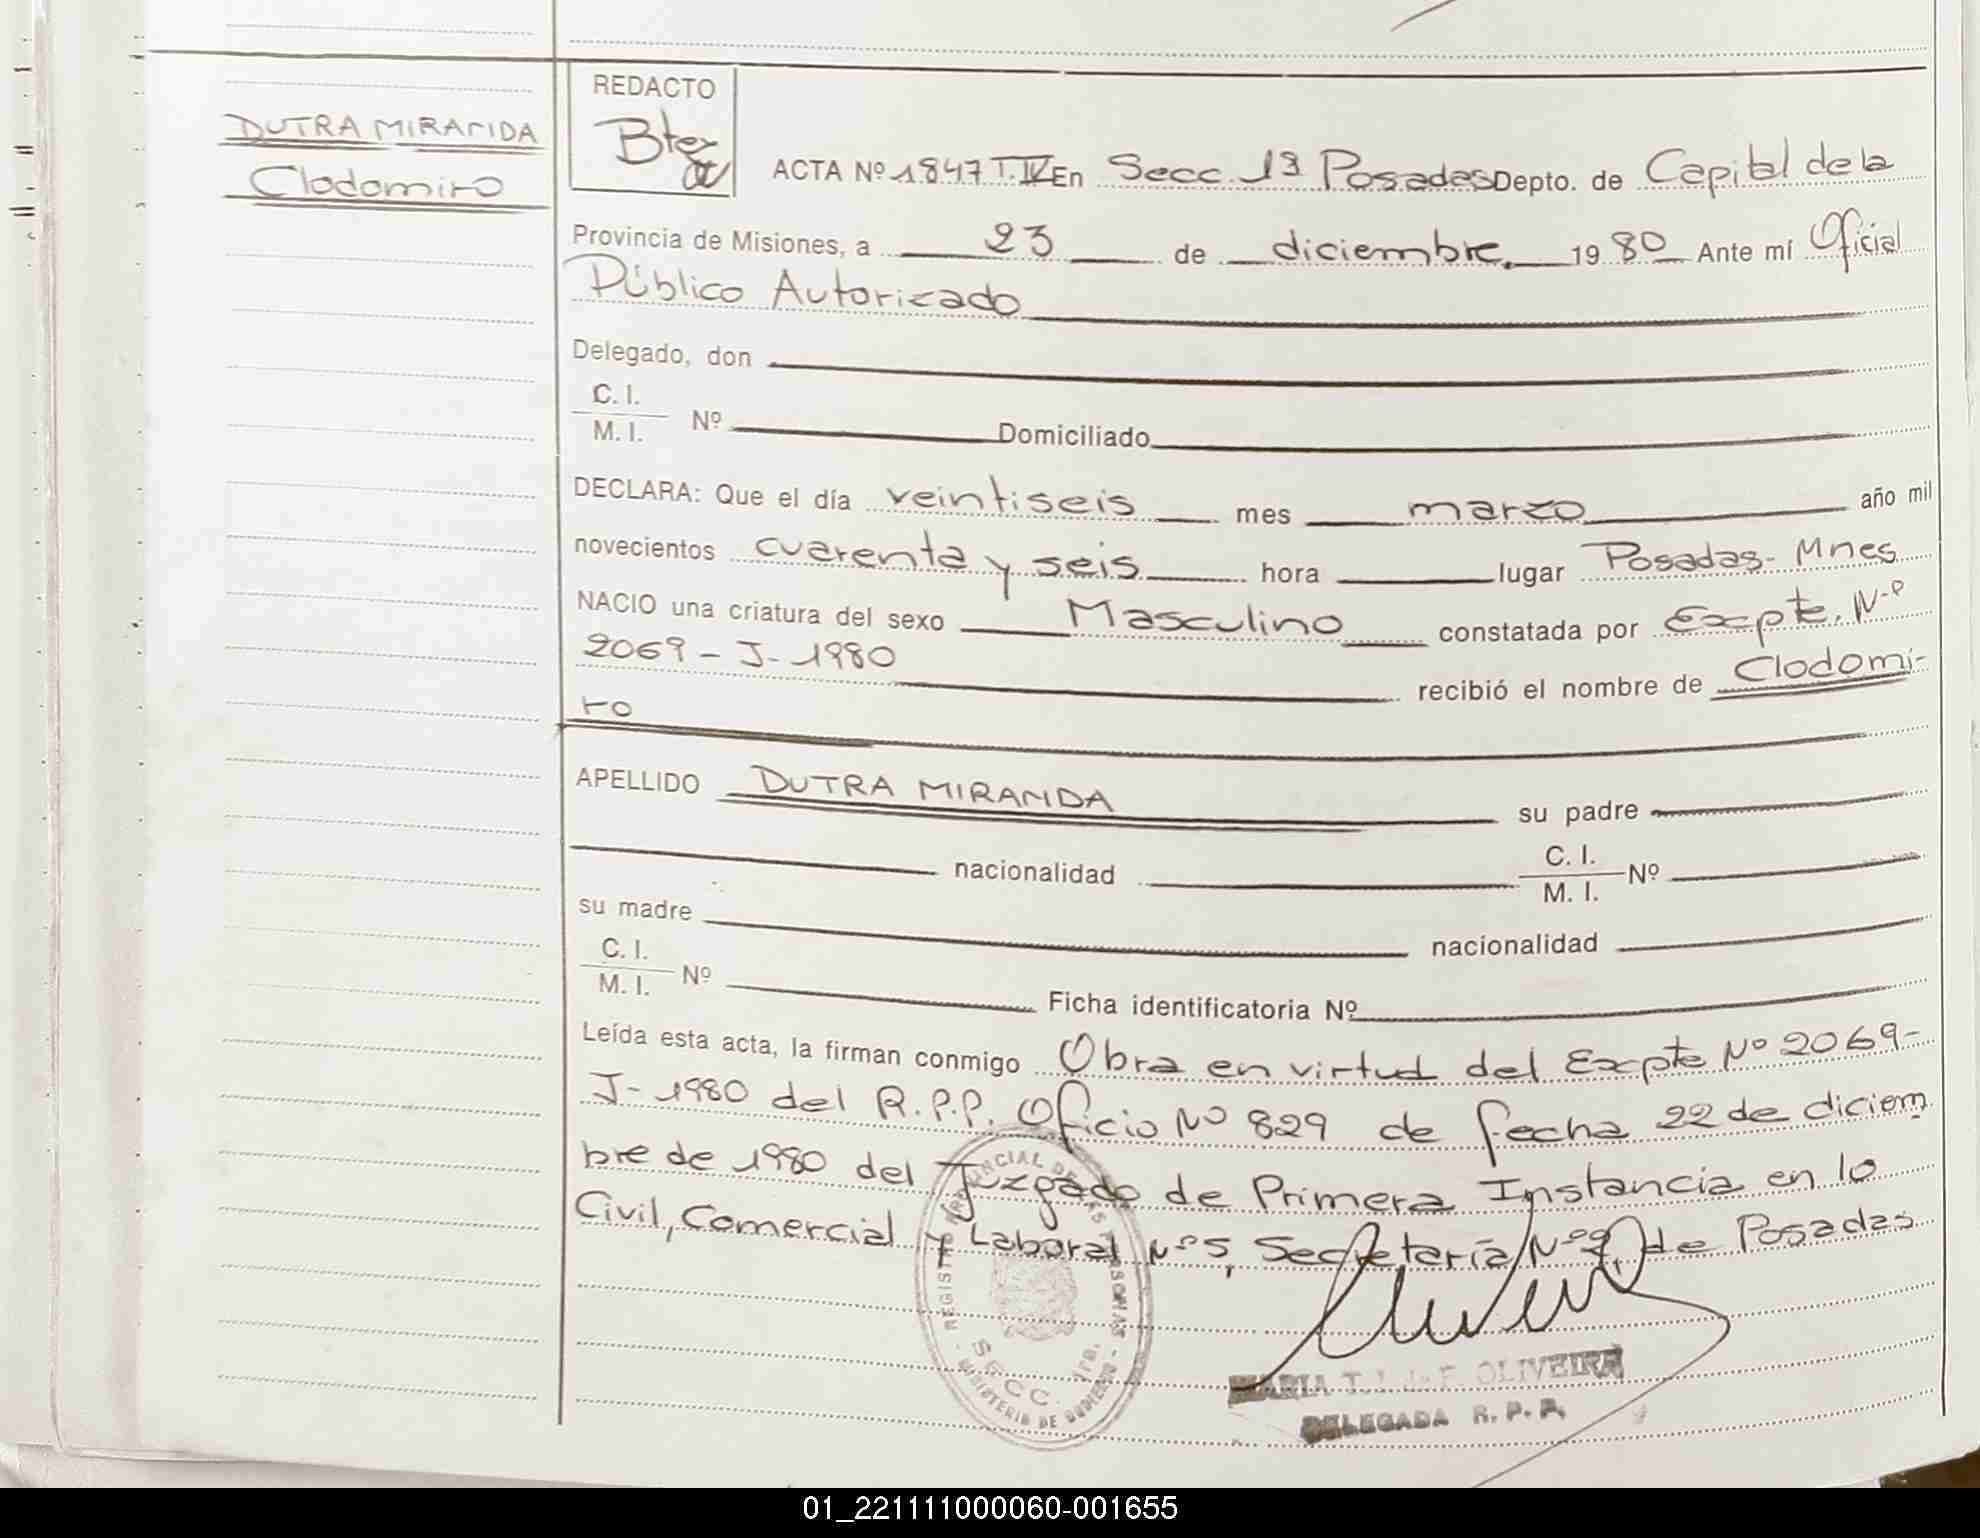 DUTRA MIRANDA
Clodomiro
REDACTO
ACTA Nº 1847 T.IV En Secc. 1ª Posadas Depto. de Capital de la
Provincia de Misiones, a 23 de diciembre. 1980 Ante mí Oficial
Público Autorizado
Delegado, don
C. I.
M. I. Nº Domiciliado
DECLARA: Que el día veintiseis mes marzo año mil
novecientos cuarenta y seis hora lugar Posadas- Mnes
NACIO una criatura del sexo Masculino constatada por Expte. Nº
2069 - J- 1980 recibió el nombre de Clodomi-
ro
APELLIDO DUTRA MIRANDA su padre
nacionalidad C. I.
M. I. Nº
su madre nacionalidad
C. I.
M. I. Nº Ficha identificatoria Nº
Leída esta acta, la firman conmigo Obra en virtud del Expte Nº 2069-
J- 1980 del R.P.P. Oficio Nº 829 de fecha 22 de diciem
bre de 1980 del Juzgado de Primera Instancia en lo
Civil, Comercial y Laboral Nº 5, Secretaría Nº 9, de Posadas
REGISTRO PROVINCIAL DE LAS PERSONAS
SECC. 1ra.
MINISTERIO DE GOBIERNO
MARIA T. OLIVEIRA
DELEGADA R. P. P.
01_221111000060-001655